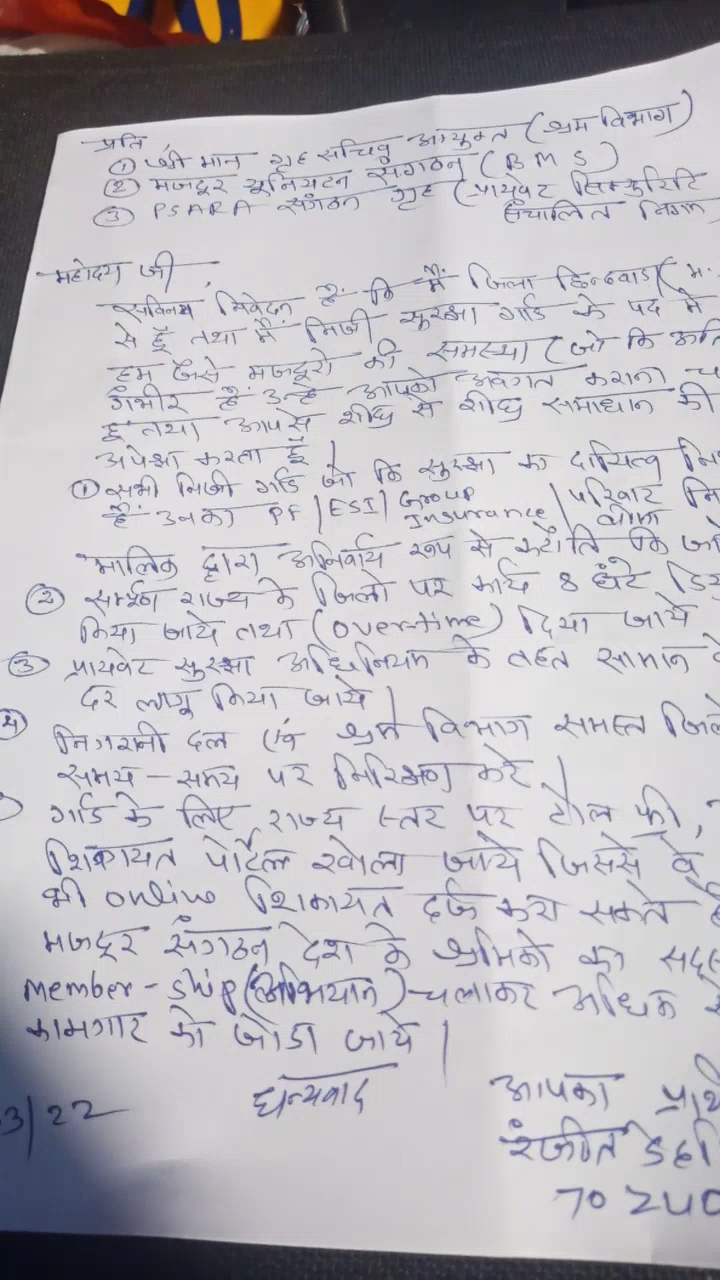 प्रति
① श्री मान गृह सचिव आयुक्त (श्रम विभाग)
② मजदूर यूनियटन संगठन (B M S)
③ PSARA संगठन गृह (प्रायवेट सिक्युरिटि
संचालित
महोदय जी,
सविनय निवेदन है कि मैं जिला छिन्दवाडा (म.
से हूँ तथा मैं निजी सुरक्षा गार्ड के पद में
हम जैसे मजदूरो की समस्या (जो कि
गंभीर है उन्हे आपको अवगत कराना
हूं तथा आपसे शीघ्र से शीघ्र समाधान की
अपेक्षा करता हूँ |
① सभी निजी गार्ड जो कि सुरक्षा का दायित्व
है उनका PF / ESI / Group Insurance / परिवार
मालिक द्वारा अनिर्वाय रूप से
② सम्पूर्ण राज्य के जिलो पर कार्य 8 घंटे
किया जाये तथा (overtime) दिया जाये
③ प्रायवेट सुरक्षा अधिनियम के तहत सामान
दर लागू किया जाये |
④ निगरानी दल एंव श्रम विभाग समस्त
समय - समय पर निरिक्षण करे |
गार्ड के लिए राज्य स्तर पर टोल फ्री,
शिकायत पोर्टल खोला जाये जिससे वे
भी online शिकायत दर्ज करा सकते
मजदूर संगठन देश के श्रमिको का
member - ship (अभियान) चलाकर अधिक से
कामगार को जोडा जाये |
धन्यवाद
आपका
3/22
रंजीत
70240